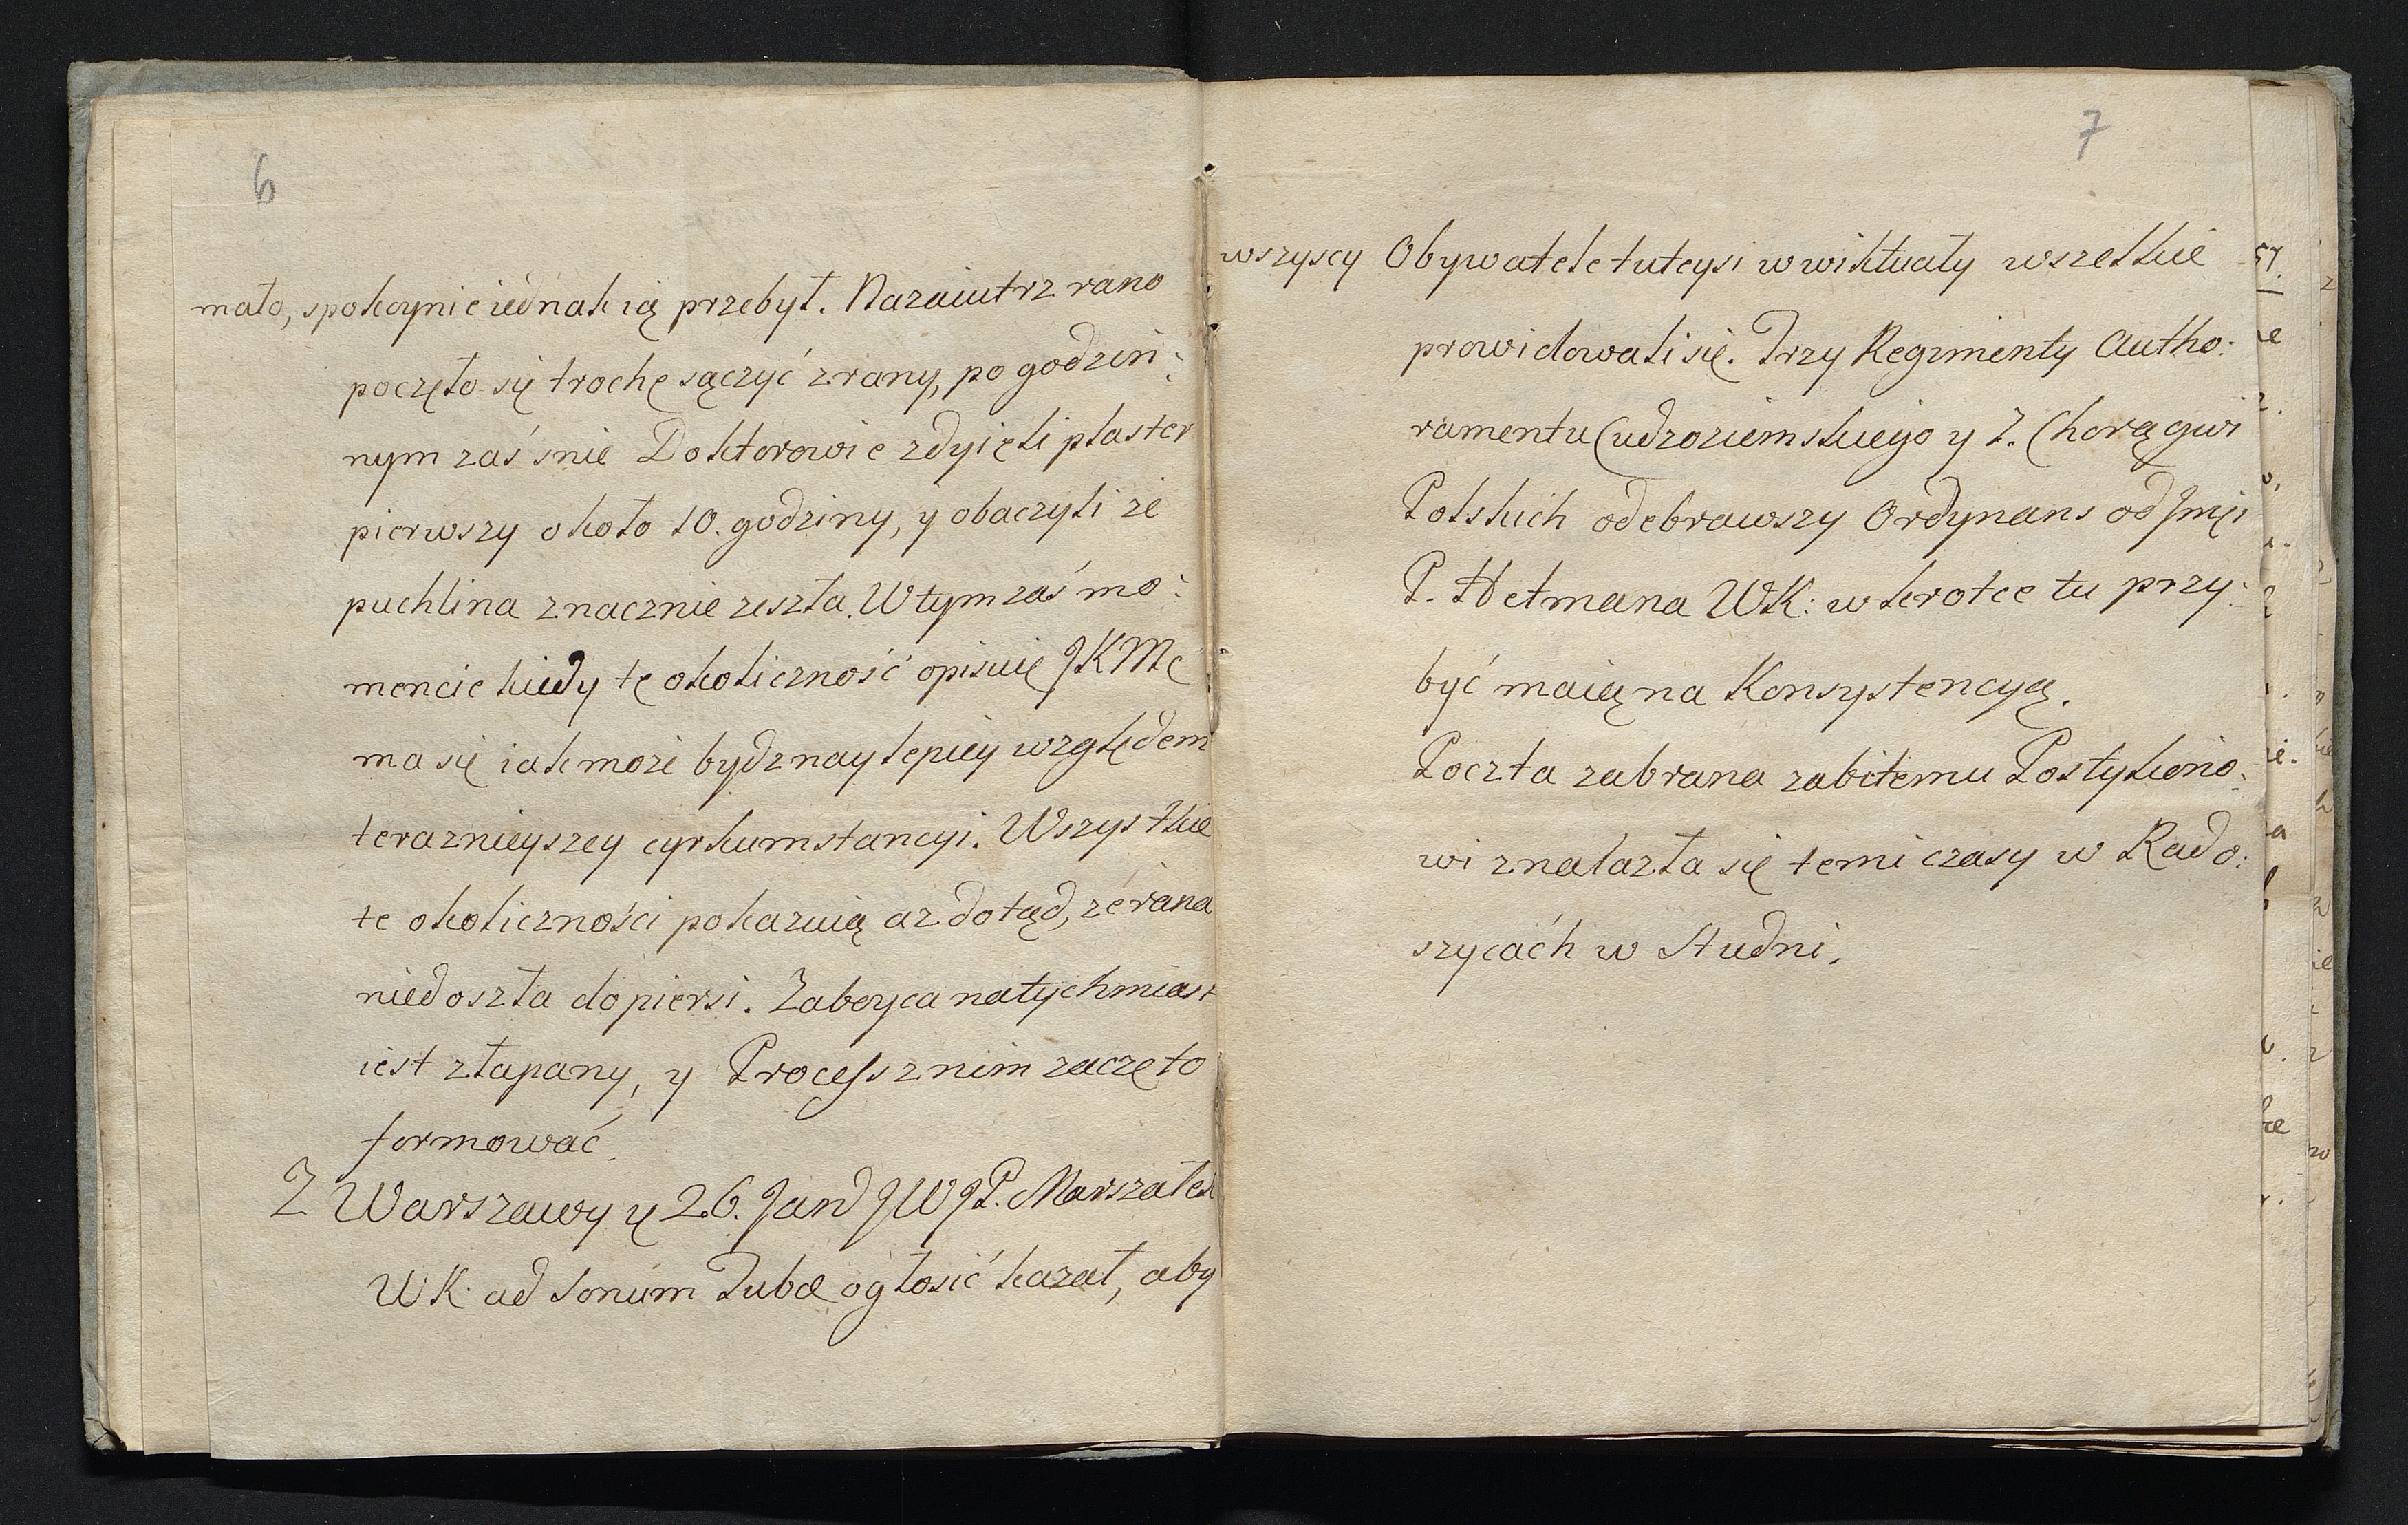 6
mało, spokoynie iednak ią przebył. Nazaiutrz rano
poczęło się trochę sączyć z rany, po godzin:
nym zaś snie Doktorowie zdyięli plaster
pierwszy około 10. godziny, y obaczyli że
puchlina znacznie zeszła. W tym zaś mo:
mencie kiedy tę okoliczność opisuię JKMć
ma się iak może bydz naylepiey względem
teraznieyszey cyrkumstancyi. Wszystkie
te okoliczności pokazuią az dotąd, ze rana
niedoszła do piersi. Zaboyca natychmiast
iest złapany, y Process z nim zaczęto
formować.
Z Warszawy y 26. Jan JWJP. Marszałek
WK: ad Sonum Tubæ ogłosić kazał, aby
7
wszyscy Obywatele tuteysi w wiktuały wszelkie
prowidowali się. Trzy Regimenty Autho:
ramentu Cudzoziemskiego y 2. Chorągwi
Polskich odebrawszy Ordynans od Jmći
P. Hetmana WK: w krotce tu przy:
być maią na Konsystencyą.
Poczta zabrana zabitemu Postyliono:
wi znalazła się temi czasy w Rado:
szycach w Studni.